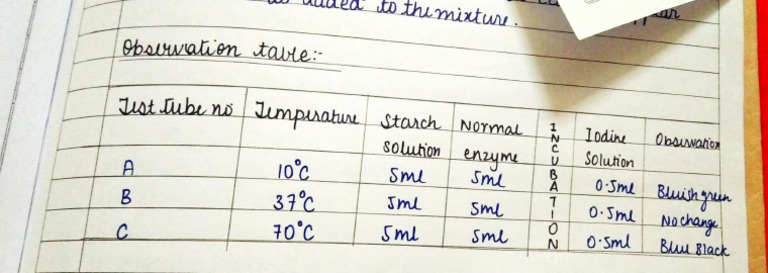 added to the mixture.
Observation table:-
Test Tube no Temperature Starch solution Normal enzyme INCUBATION Iodine Solution Observation
A 10°C 5ml 5ml 0.5ml Bluish green
B 37°C 5ml 5ml 0.5ml No change
C 70°C 5ml 5ml 0.5ml Blue Black